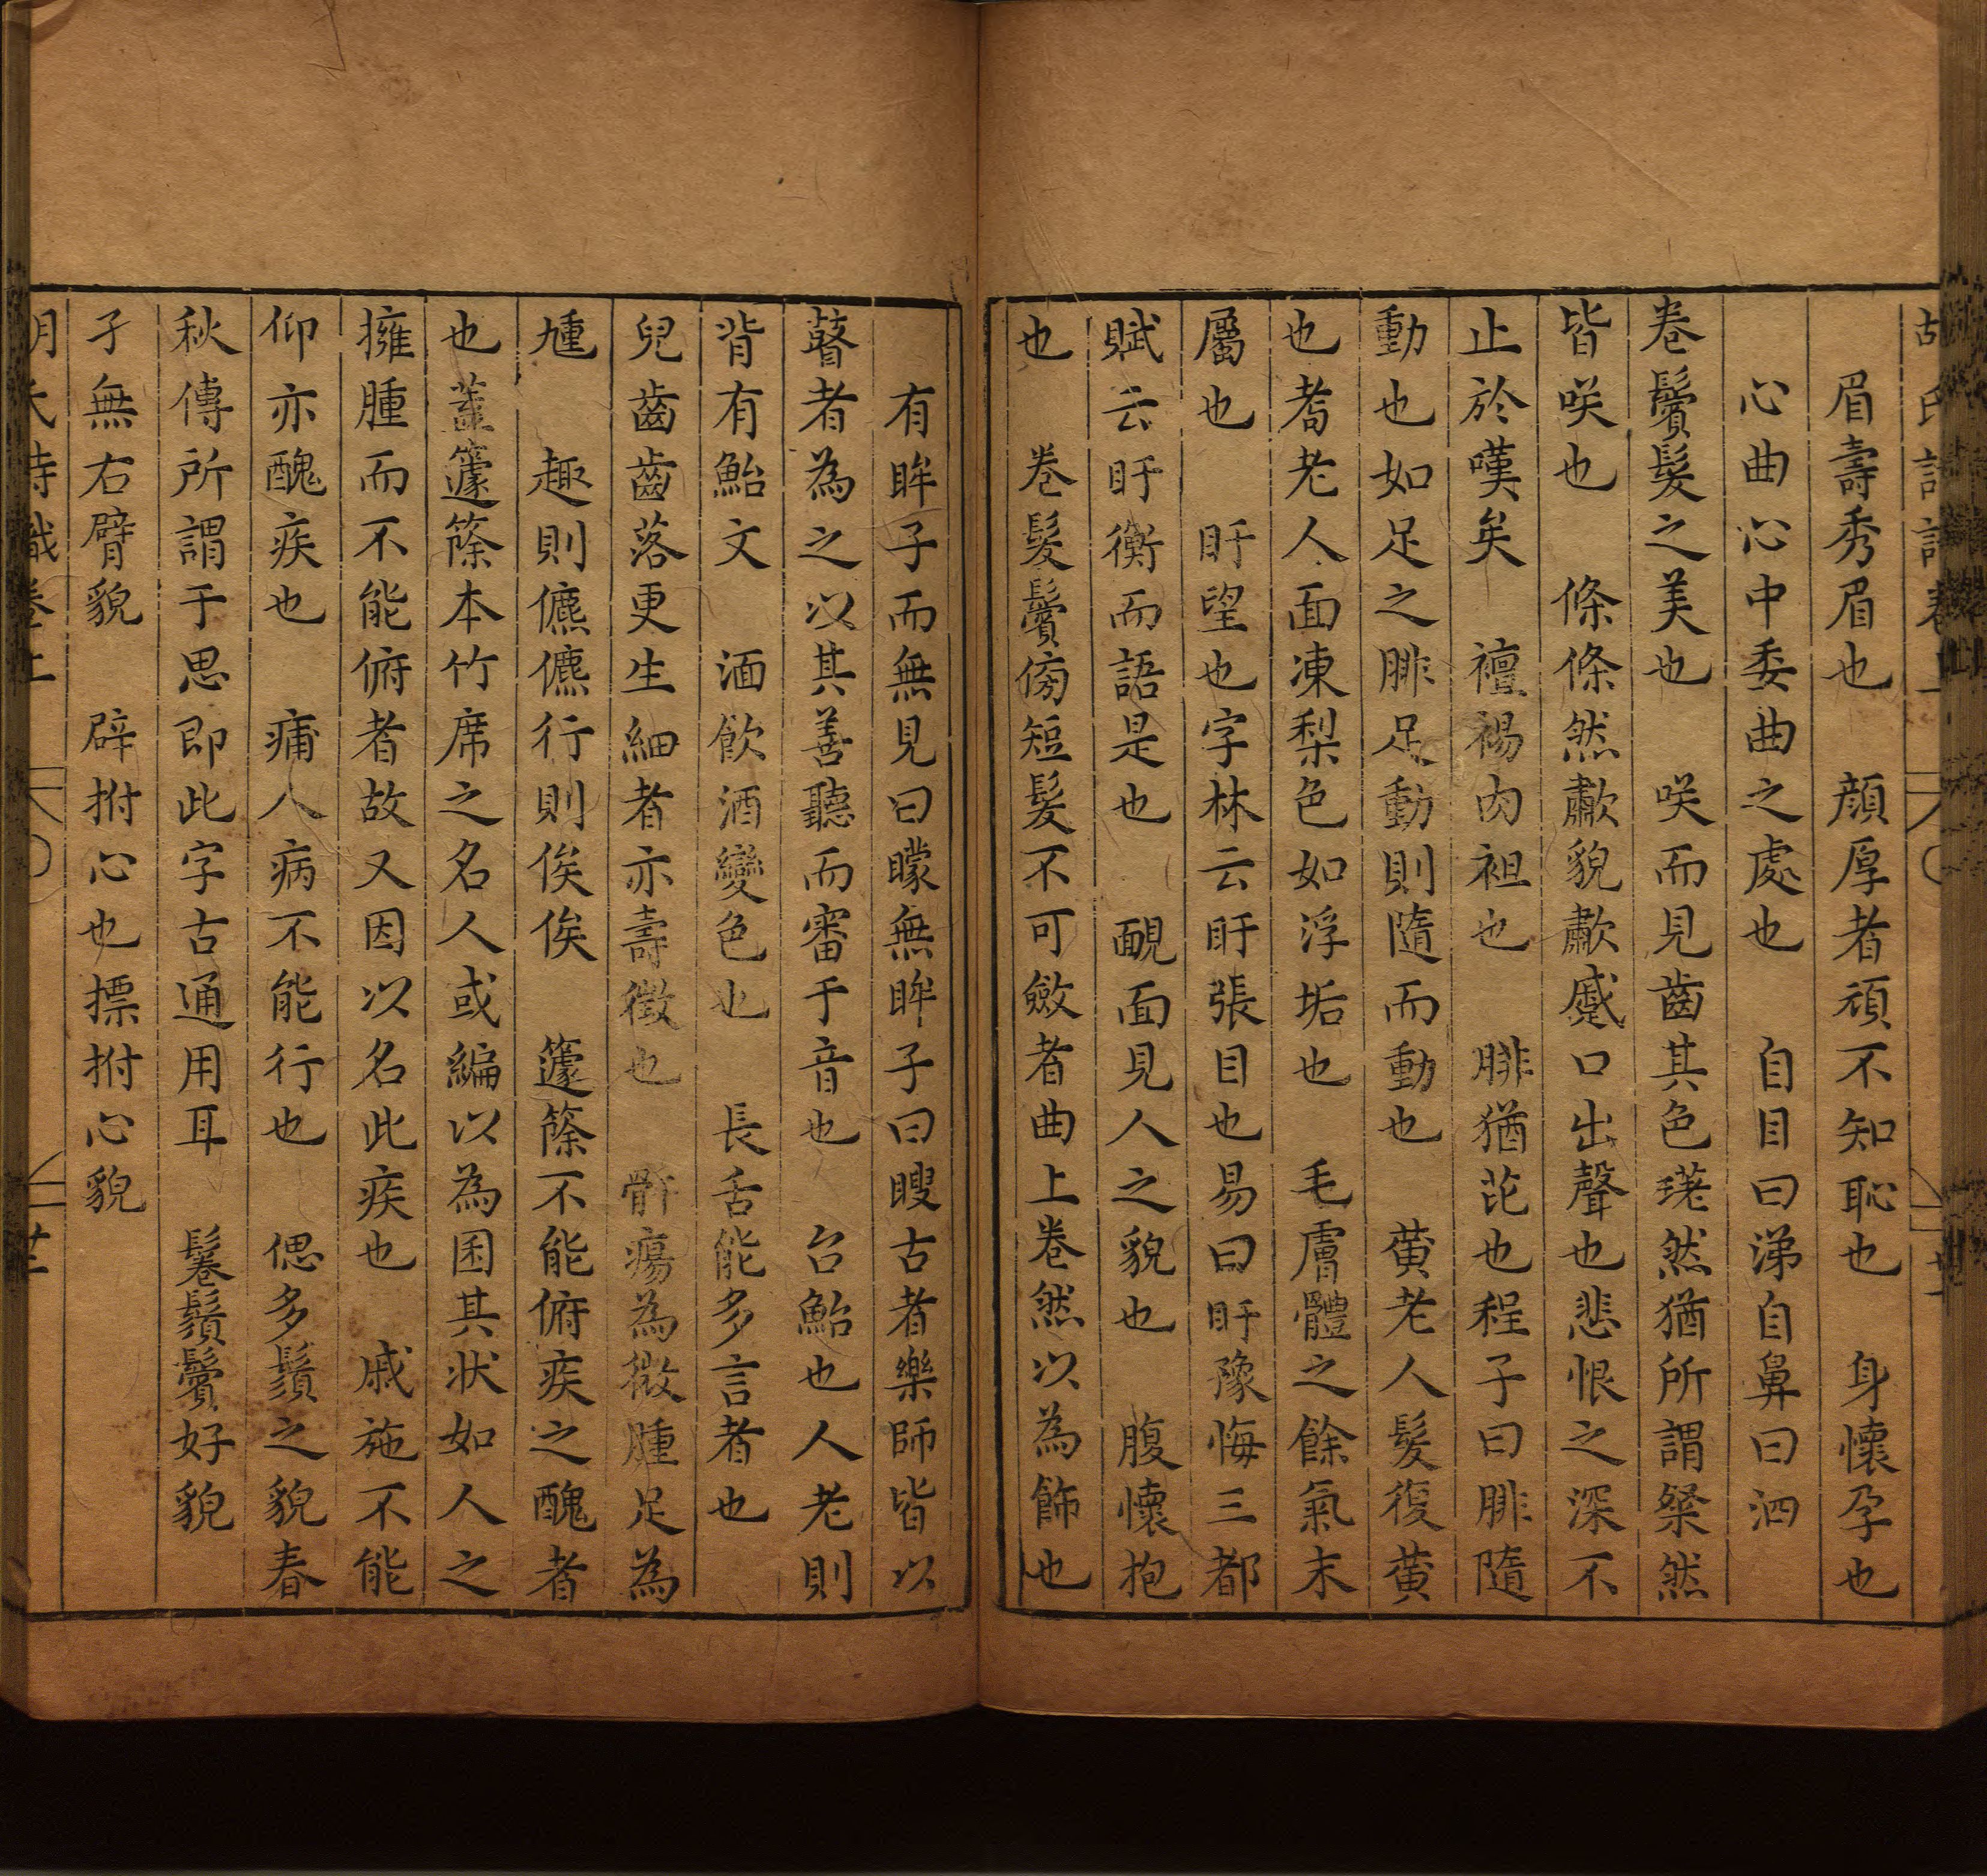 眉壽秀眉也　顏厚者頑不知恥也　身懷孕也
心曲心中委曲之處也　自目曰涕自鼻曰泗
卷鬢髮之美也　咲而見齒其色瑳然猶所謂粲然
皆咲也　條條然歗貌歗蹙口出聲也悲恨之深不
止於嘆矣　襢裼肉袒也　腓猶芘也程子曰腓隨
動也如足之腓足動則隨而動也　黃老人髮復黃
也耇老人面凍梨色如浮垢也　毛膚體之餘氣末
屬也　盱望也字林云盱張目也易曰盱豫悔三都
賦云盱衡而語是也　靦面見人之貌也　腹懷抱
也　卷髮鬢傍短髮不可斂者曲上卷然以為飾也
有眸子而無見曰矇無眸子曰瞍古者樂師皆以
瞽者為之以其善聽而審于音也　台鮐也人老則
背有鮐文　湎飲酒變色也　長舌能多言者也
兒齒齒落更生細者亦壽徵也　骭瘍為微腫足為
尰　趣則儦儦行則俟俟　籧篨不能俯疾之醜者
也蓋籧篨本竹席之名人或編以為囷其狀如人之
擁腫而不能俯者故又因以名此疾也　戚施不能
仰亦醜疾也　痡人病不能行也　偲多鬚之貌春
秋傳所謂于思即此字古通用耳　鬈鬚鬢好貌
孑無右臂貌　辟拊心也摽拊心貌